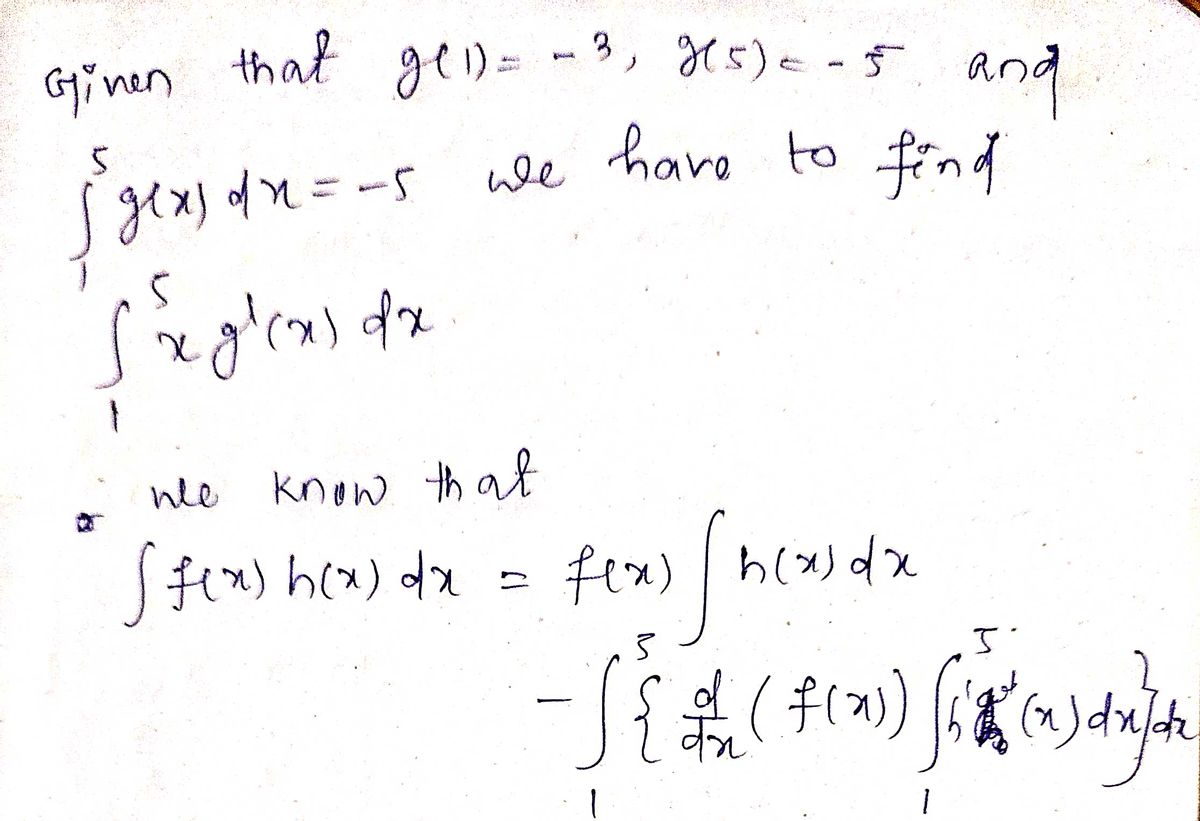 Given that g(1) = -3, g(5) = -5 and
∫₁⁵ g(x) dx = -5 we have to find
∫₁⁵ x g'(x) dx.
we know that
∫ f(x) h(x) dx = f(x) ∫ h(x) dx
- ∫₁⁵ { d/dx ( f(x)) ∫₁⁵ h (x) dx } dx